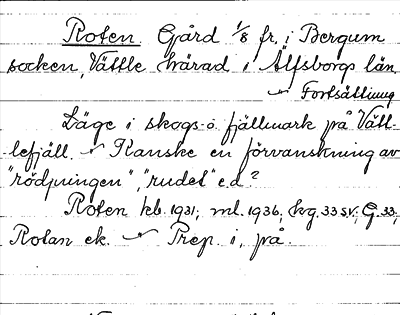 Roten. Gård 1/8 fr. i Bergum
socken, Vättle härad i Älfsborgs län.
Fortsättning
Läge i skogs- o. fjällmark på Vätt-
lefjäll. Kanske en förvanskning av
"rödjningen", "rudet" e.d?
Roten kb. 1931; ml. 1936, kg. 33 SV; G. 33;
Rotan ek. Prep. i, på.